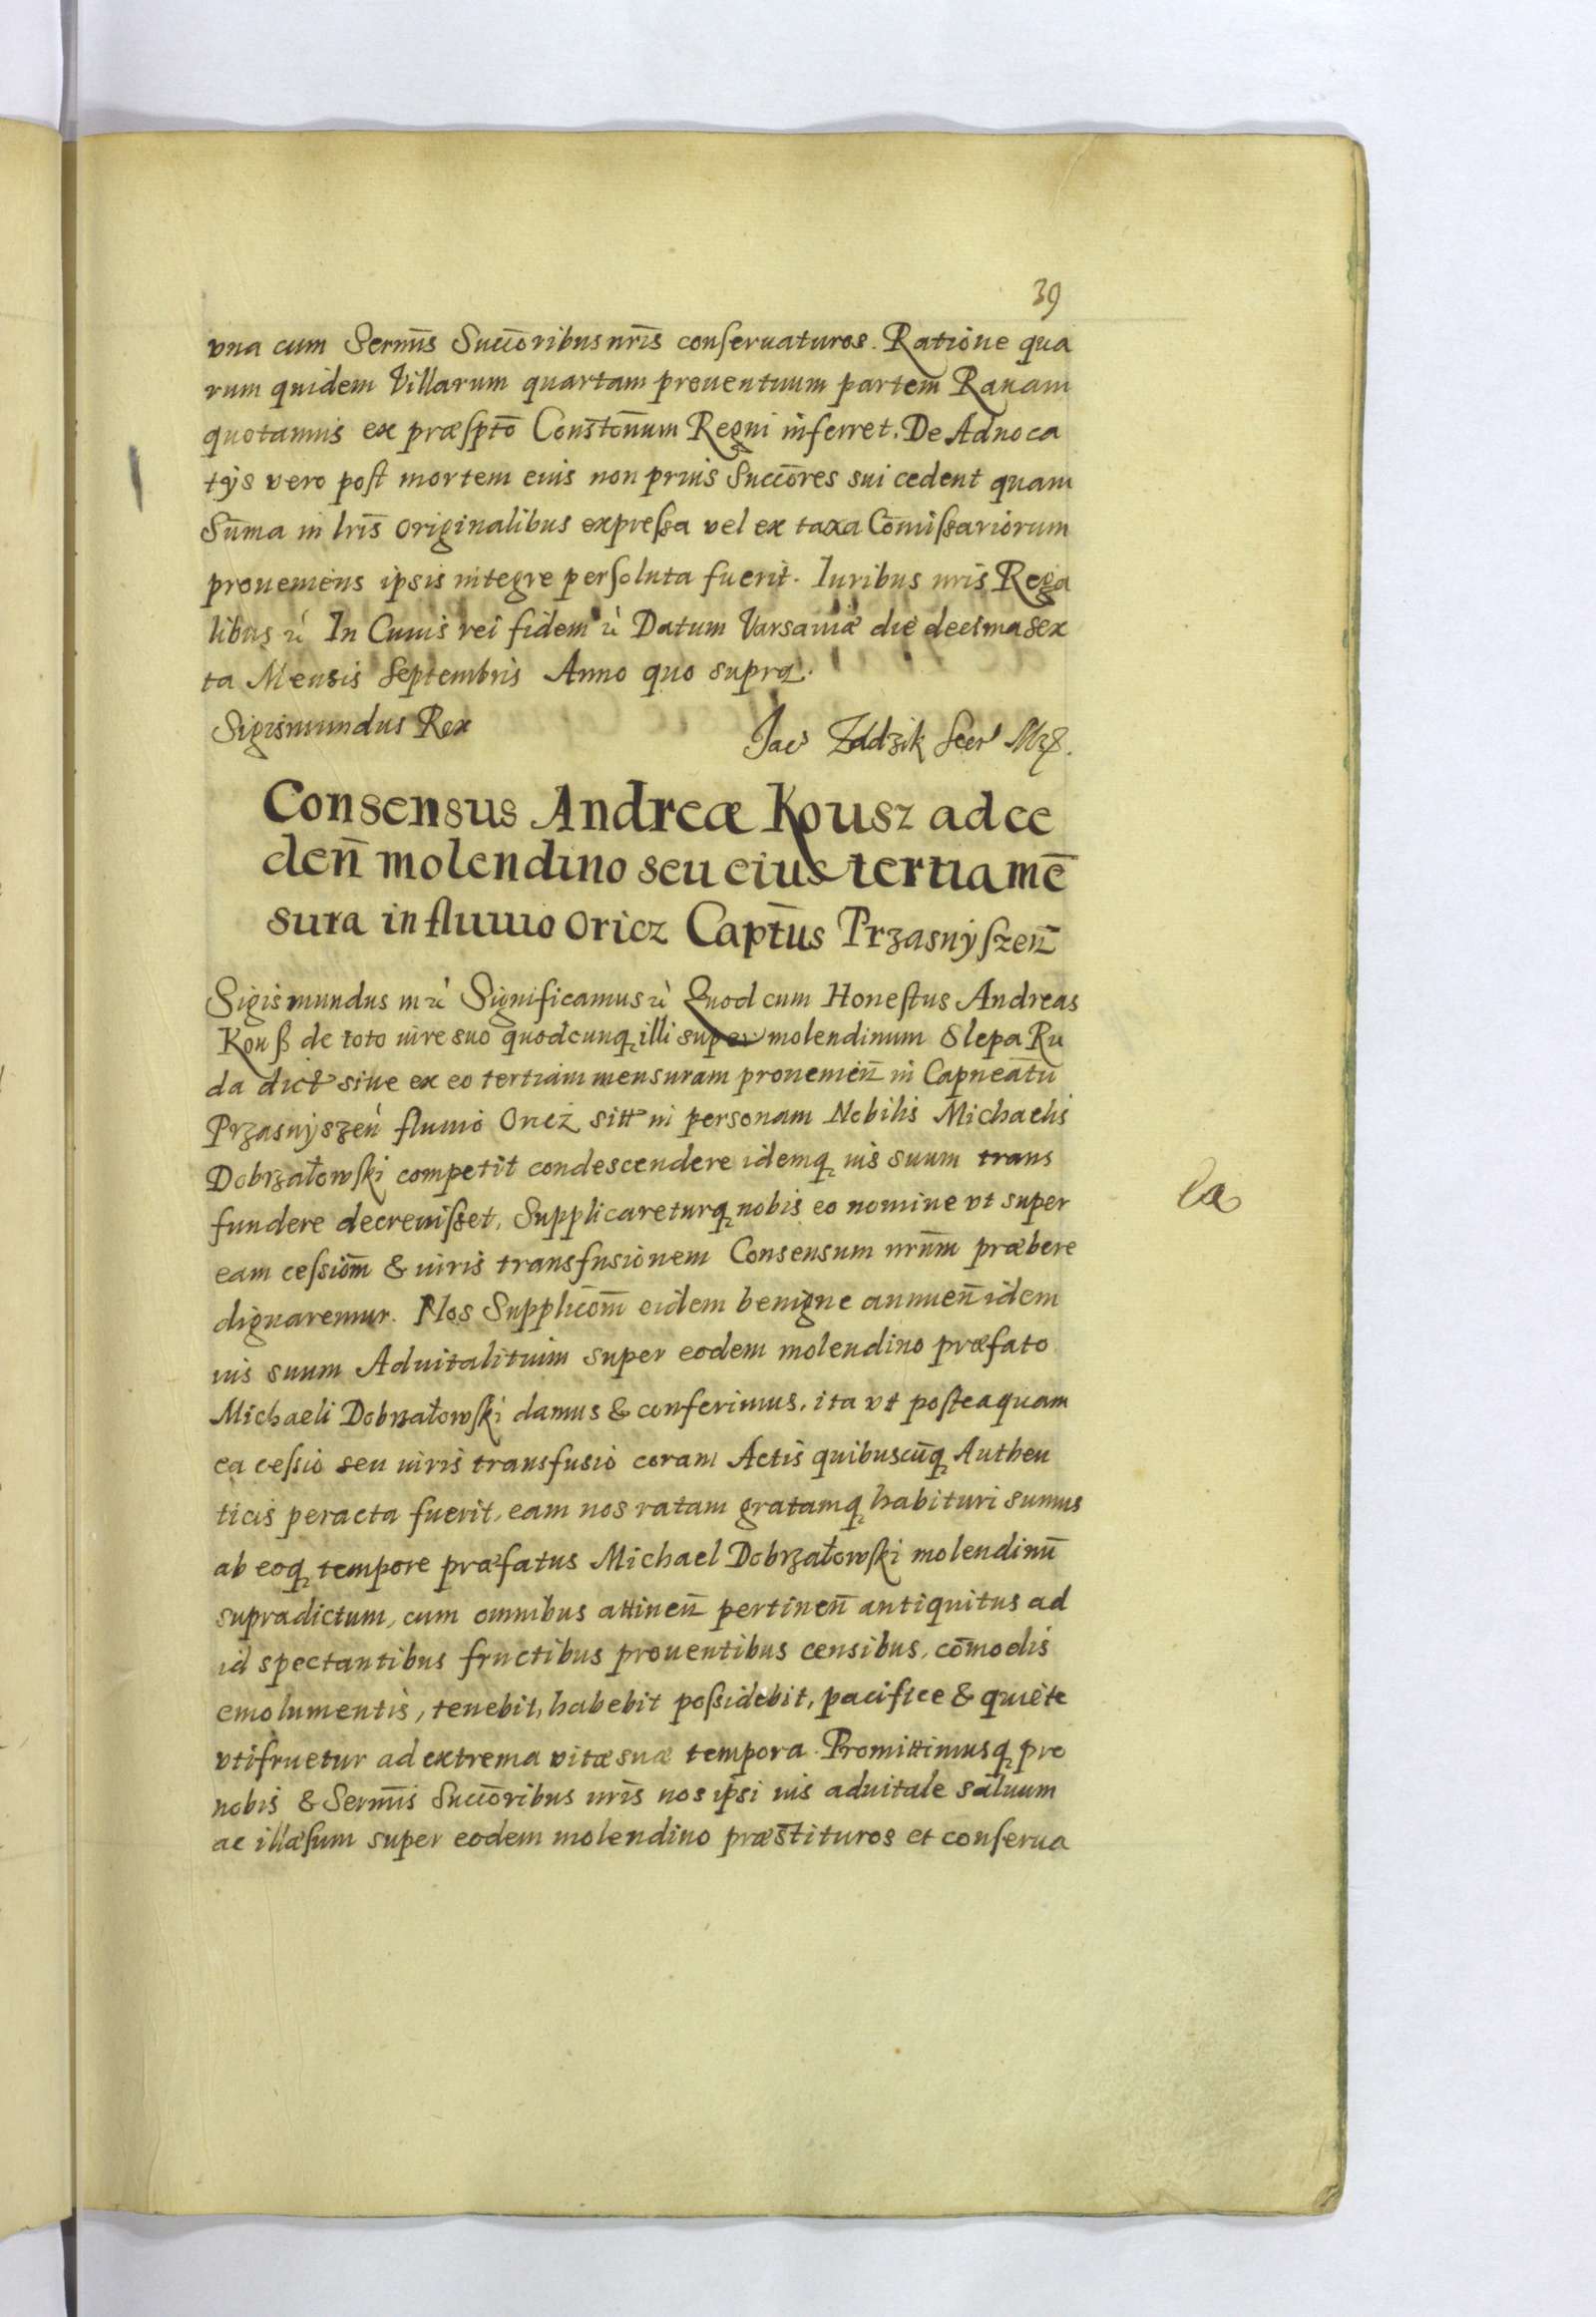 39
vna cum Sermīs Succōribus nrīs conseruaturos. Ratione qua
rum quidem Villarum quartam prouentuum partem Rauam
quotannis ex præsptō Constōnum Regni inferret. De Aduoca
tÿs vero post mortem eius non prius Succōres sui cedent quam
Sūma in lrīs originalibus expressa vel ex taxa Cōmissariorum
proueniens ipsis integre persoluta fuerit. Iuribus nris Rega
libus &c In Cuius rei fidem &c Datum Varsauiæ die decima sex
ta Mensis Septembris Anno quo supra.
Sigismundus Rex
Jac Zadzik Secr
Consensus Andreæ Kousz ad ce
den̄ molendino seu eius tertia mē
sura in fluuio Oricz Captūs Przasnÿszen̄
Sigismundus III &c Significamus &c Quod cum Honestus Andreas
Kouß de toto iure suo quodcunq illi super molendinum Slepa Ru
da dict siue ex eo tertiam mensuram prouenien̄ in Capneatū
Przasnyszen fluuio Oricz sitt in personam Nobilis Michaelis
Dobrzałowski competit condescendere idemq ius suum trans
fundere decreuisset, Supplicareturq nobis eo nomine vt super
la
eam cessiōm & iuris transfusionem Consensum nrūm præbere
dignaremur. Nos Supplicōm eidem benigne annuen̄ idem
ius suum Aduitalituim super eodem molendino præfato
Michaeli Dobrzałowski damus & conferimus, ita vt posteaquam
ea cessio seu iuris transfusio coram Actis quibuscūq Authen
ticis peracta fuerit, eam nos ratam gratamq habituri sumus
ab eoq tempore præfatus Michael Dobrzałowski molendinū
supradictum, cum omnibus attinen̄ pertinen̄ antiquitus ad
id spectantibus fructibus prouentibus censibus, cōmodis
emolumentis, tenebit, habebit possidebit, pacifice & quiete
vtifruetur ad extrema vitæ suæ tempora. Promittimusq pro
nobis & Sermīs Succōribus nrīs nos ipsi ius aduitale saluum
ac illæsum super eodem molendino præstituros et conserua